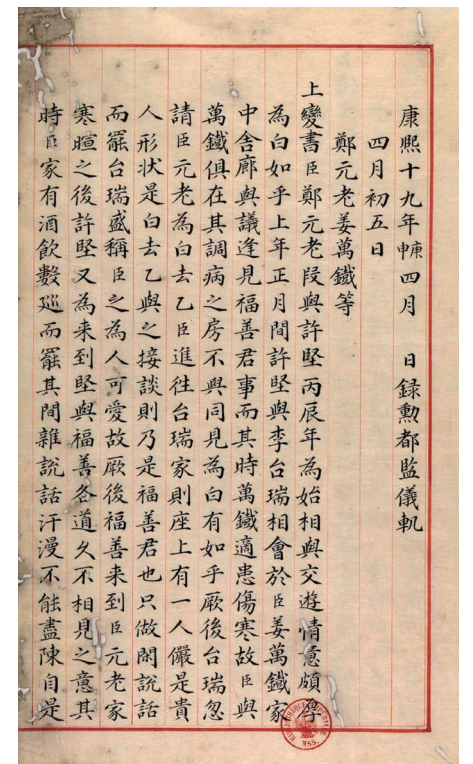 康熙十九年庚申四月 日錄勳都監儀軌
四月初五日
鄭元老姜萬鐵等
上變書臣鄭元老段與許堅丙辰年為始相與交遊情意頗厚
為白如乎上年正月間許堅與李台瑞相會於臣姜萬鐵家
中舍廊與議逢見福善君事而其時萬鐵適患傷寒故臣與
萬鐵俱在其調病之房不與同見為白有如乎厥後台瑞忽
請臣元老為白去乙臣進往台瑞家則座上有一人儼是貴
人形状是白去乙與之接談則乃是福善君也只做閑說話
而罷台瑞盛稱臣之為人可愛故厥後福善來到臣元老家
寒暄之後許堅又為来到堅與福善各道久不相見之意其
時臣家有酒飲數廵而罷其間雜說話汗漫不能盡陳自是
MSS.